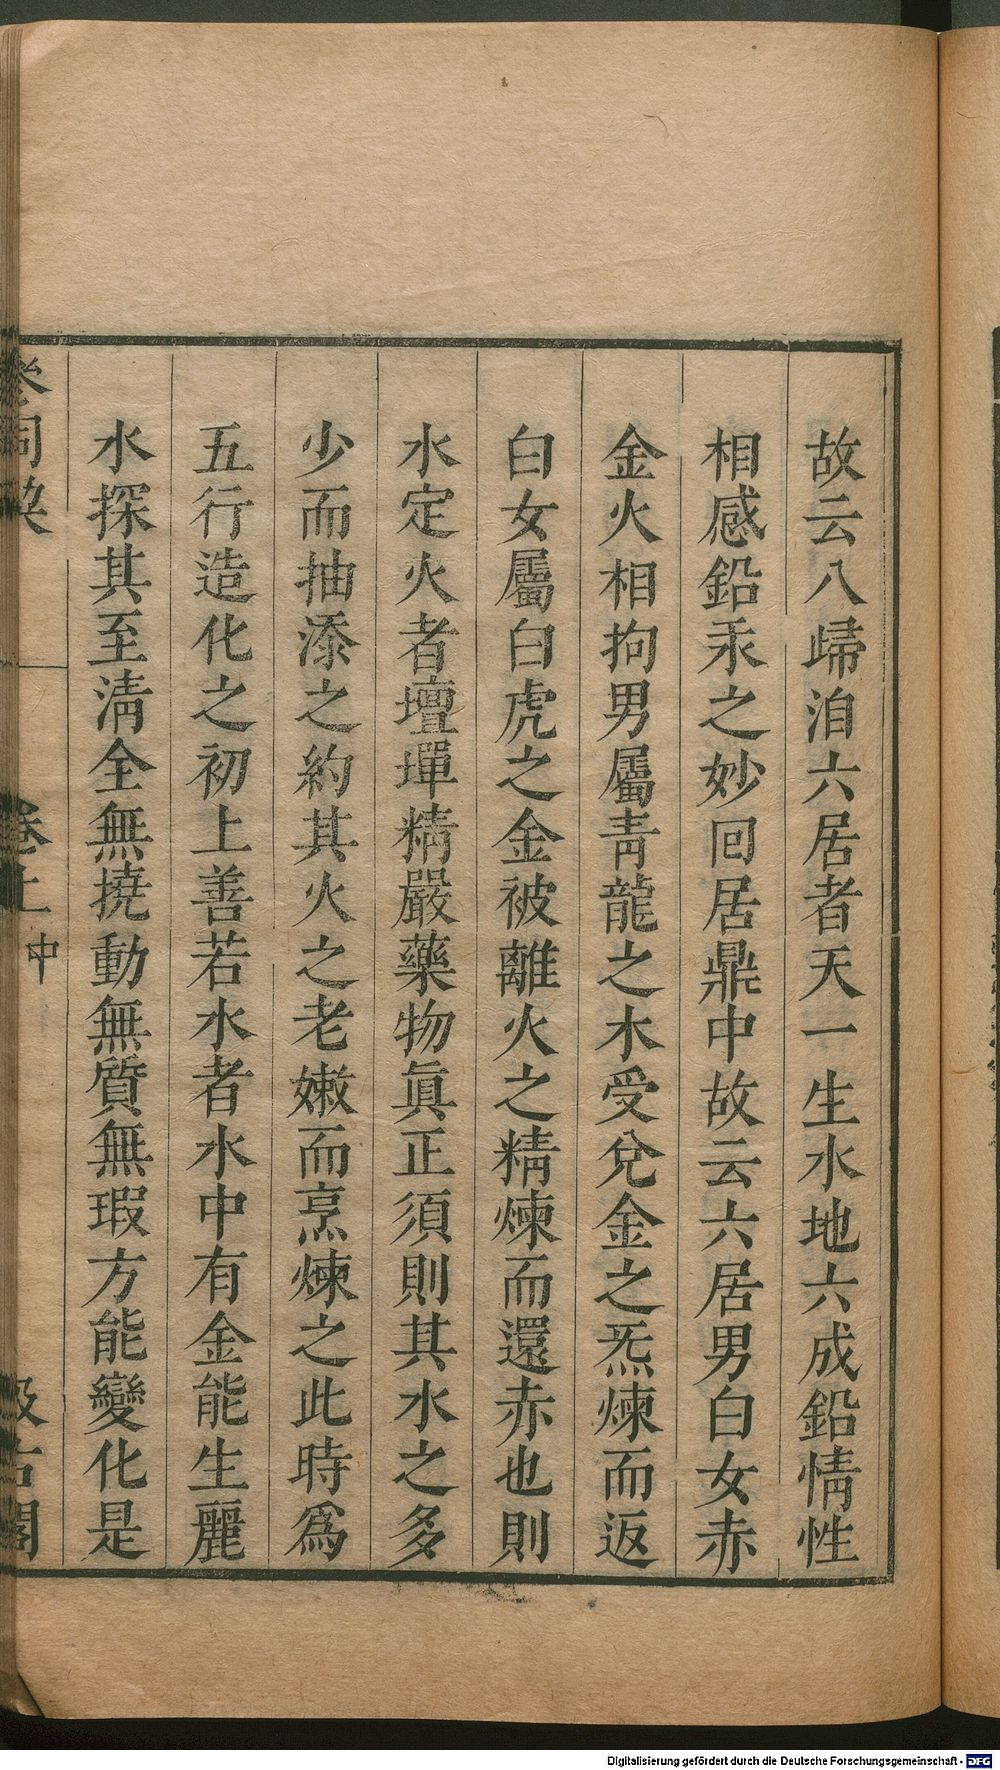 故云八歸洎六居者天一生水地六成鉛情性
相感鉛汞之妙回居鼎中故云六居男白女赤
金火相拘男屬靑龍之木受兌金之炁煉而返
白女屬白虎之金被離火之精煉而還赤也則
水定火者壇墠精嚴藥物眞正須則其水之多
少而抽添之約其火之老嫩而烹煉之此時爲
五行造化之初上善若水者水中有金能生麗
水探其至淸全無撓動無質無瑕方能變化是
參同契
卷上 中
汲古閣
Digitalisierung gefördert durch die Deutsche Forschungsgemeinschaft - DFG